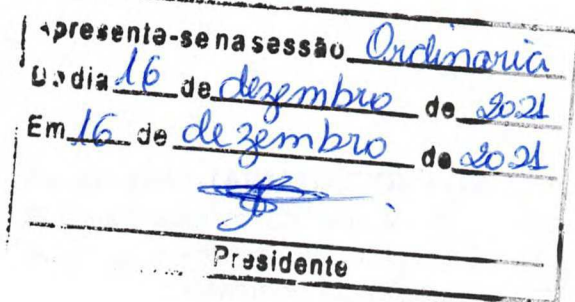 apresenta-se na sessão Ordinaria
Do dia 16 de dezembro de 2021
Em 16 de dezembro de 2021
Presidente